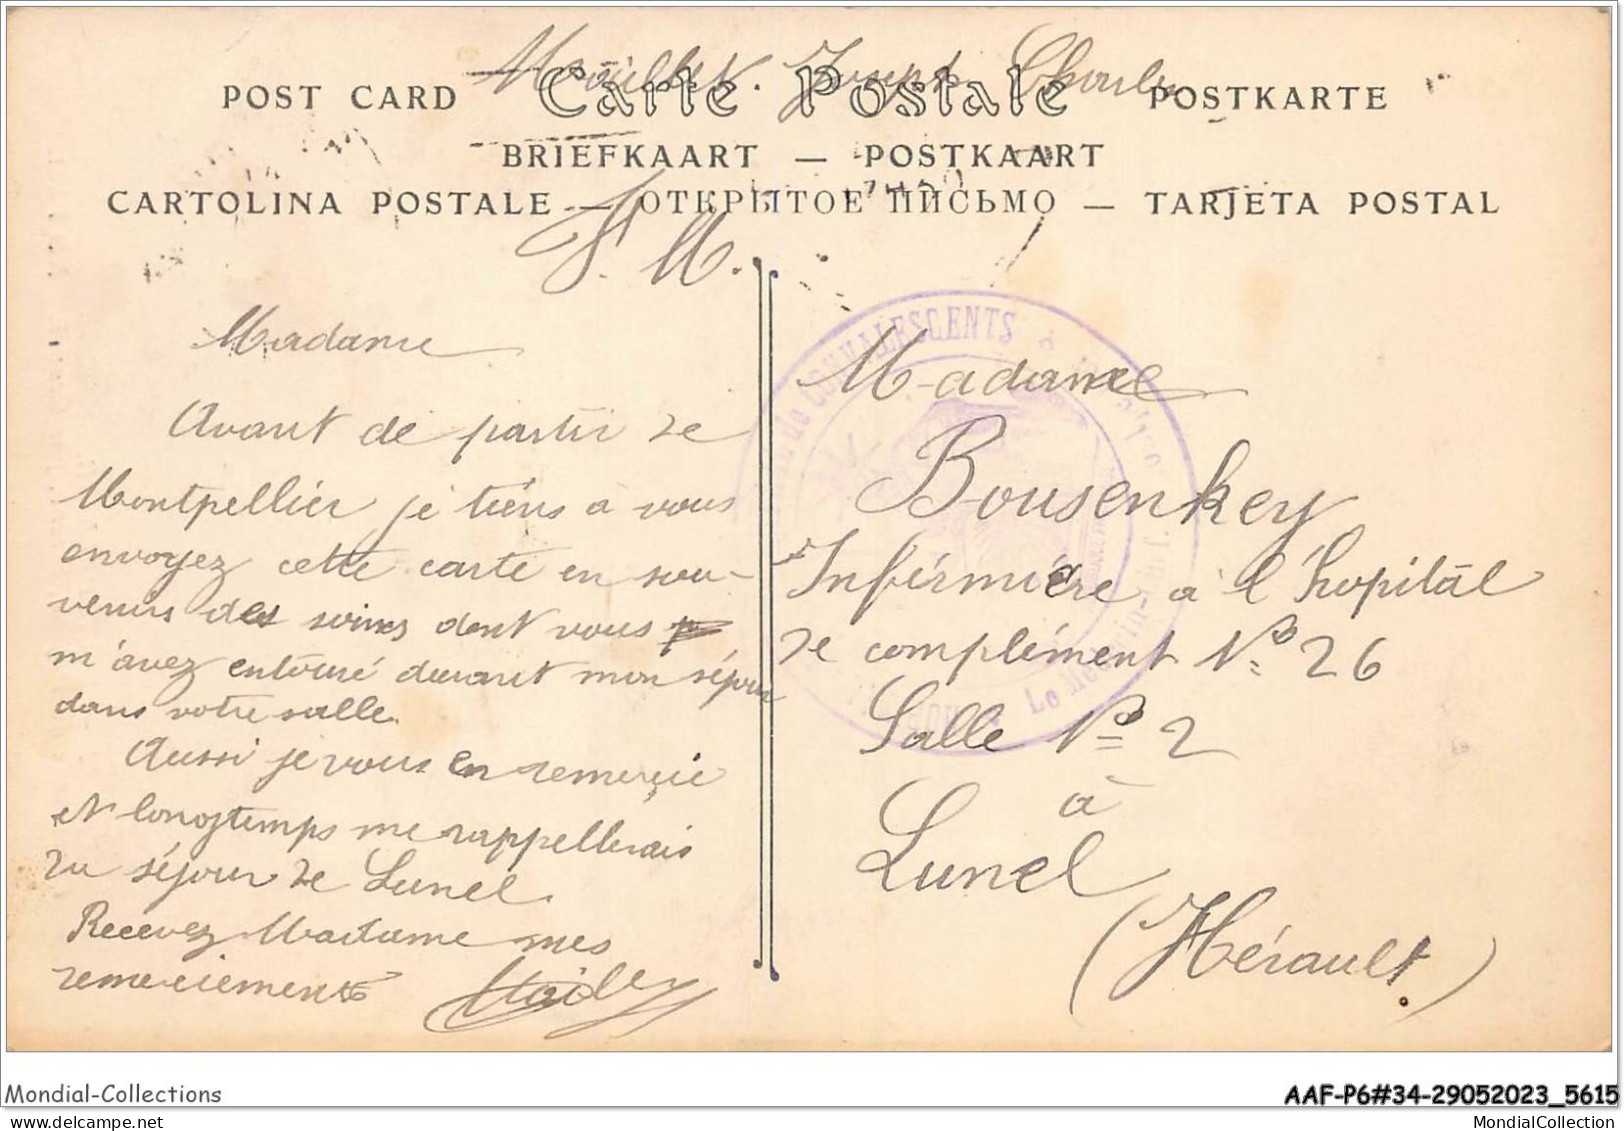 Joseph
POST CARD Carte Postale POSTKARTE
BRIEFKAART — POSTKAART
CARTOLINA POSTALE — ОТКРЫТОЕ ПИСЬМО — TARJETA POSTAL
F. M.
Madame
Avant de partir de
Montpellier je tiens à vous
envoyez cette carte en sou-
venirs des soins dont vous
m'avez entouré durant mon séjour
dans votre salle.
Aussi je vous en remerçie
et longtemps me rappellerais
du séjour de Lunel.
Recevez Madame mes
remerciements
Madame
Bousenkey
Infirmière à l'hopital
de complément No 26
Salle No 2
à
Lunel
(Hérault.)
de CONVALESCENTS
Le Médecin-
Mondial-Collections
AAF-P6#34-29052023_5615
MondialCollection.com